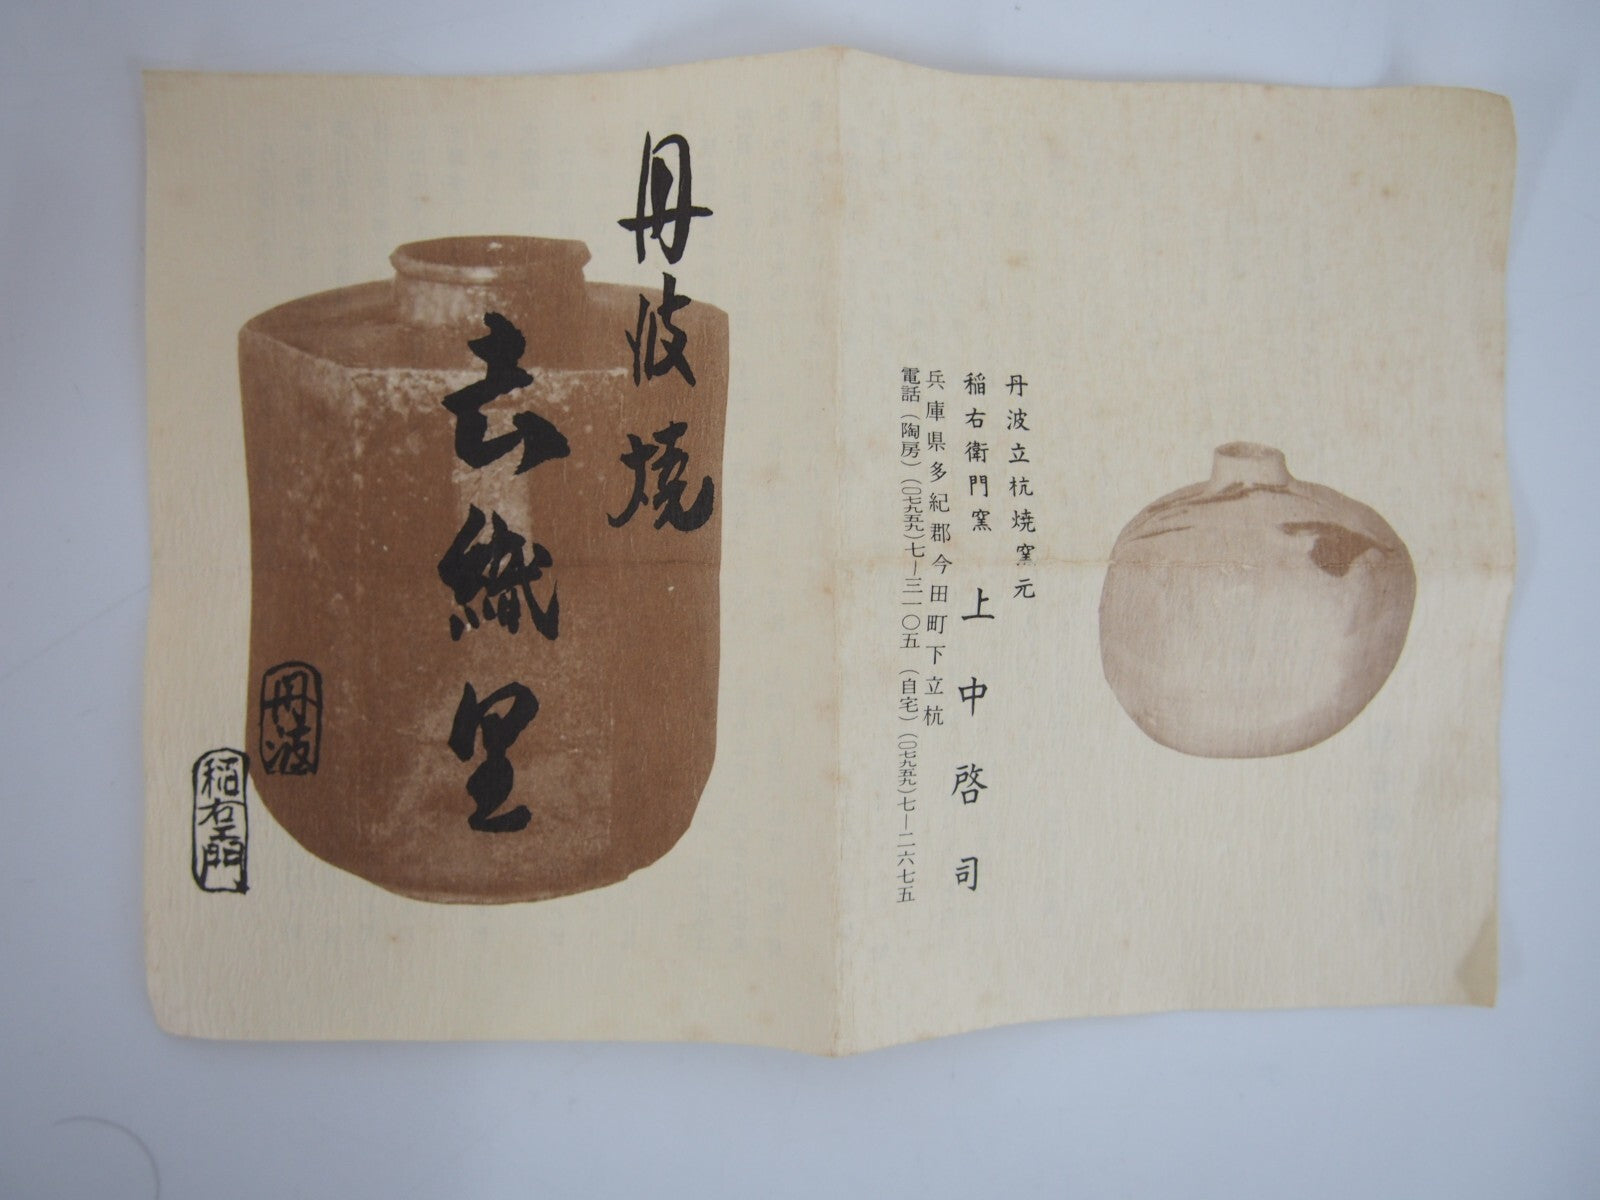 丹波立杭焼窯元
稲右衛門窯 上中啓司
兵庫県多紀郡今田町下立杭
電話(陶房)(〇七九五九)七―三一〇五 (自宅)(〇七九五九)七―二六七五
丹波焼
織里
丹波
稲右エ門